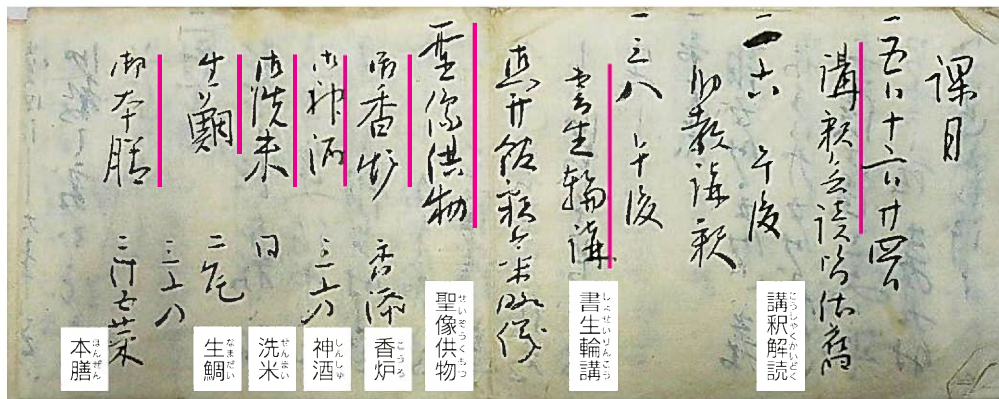 課日
五日十三日廿四日
講釈会読皆依旧
一六 午後
助教講釈
三八 午後
書生輪講
聖像供物
御香炉 香添
御神酒 三方
御洗米 同
生鯛 二尾
三方
御本膳 二汁七菜
講釈解読
こうしゃくかいどく
書生輪講
しょせいりんこう
聖像供物
せいぞうくもつ
香炉
こうろ
神酒
しんしゅ
洗米
せんまい
生鯛
なまだい
本膳
ほんぜん